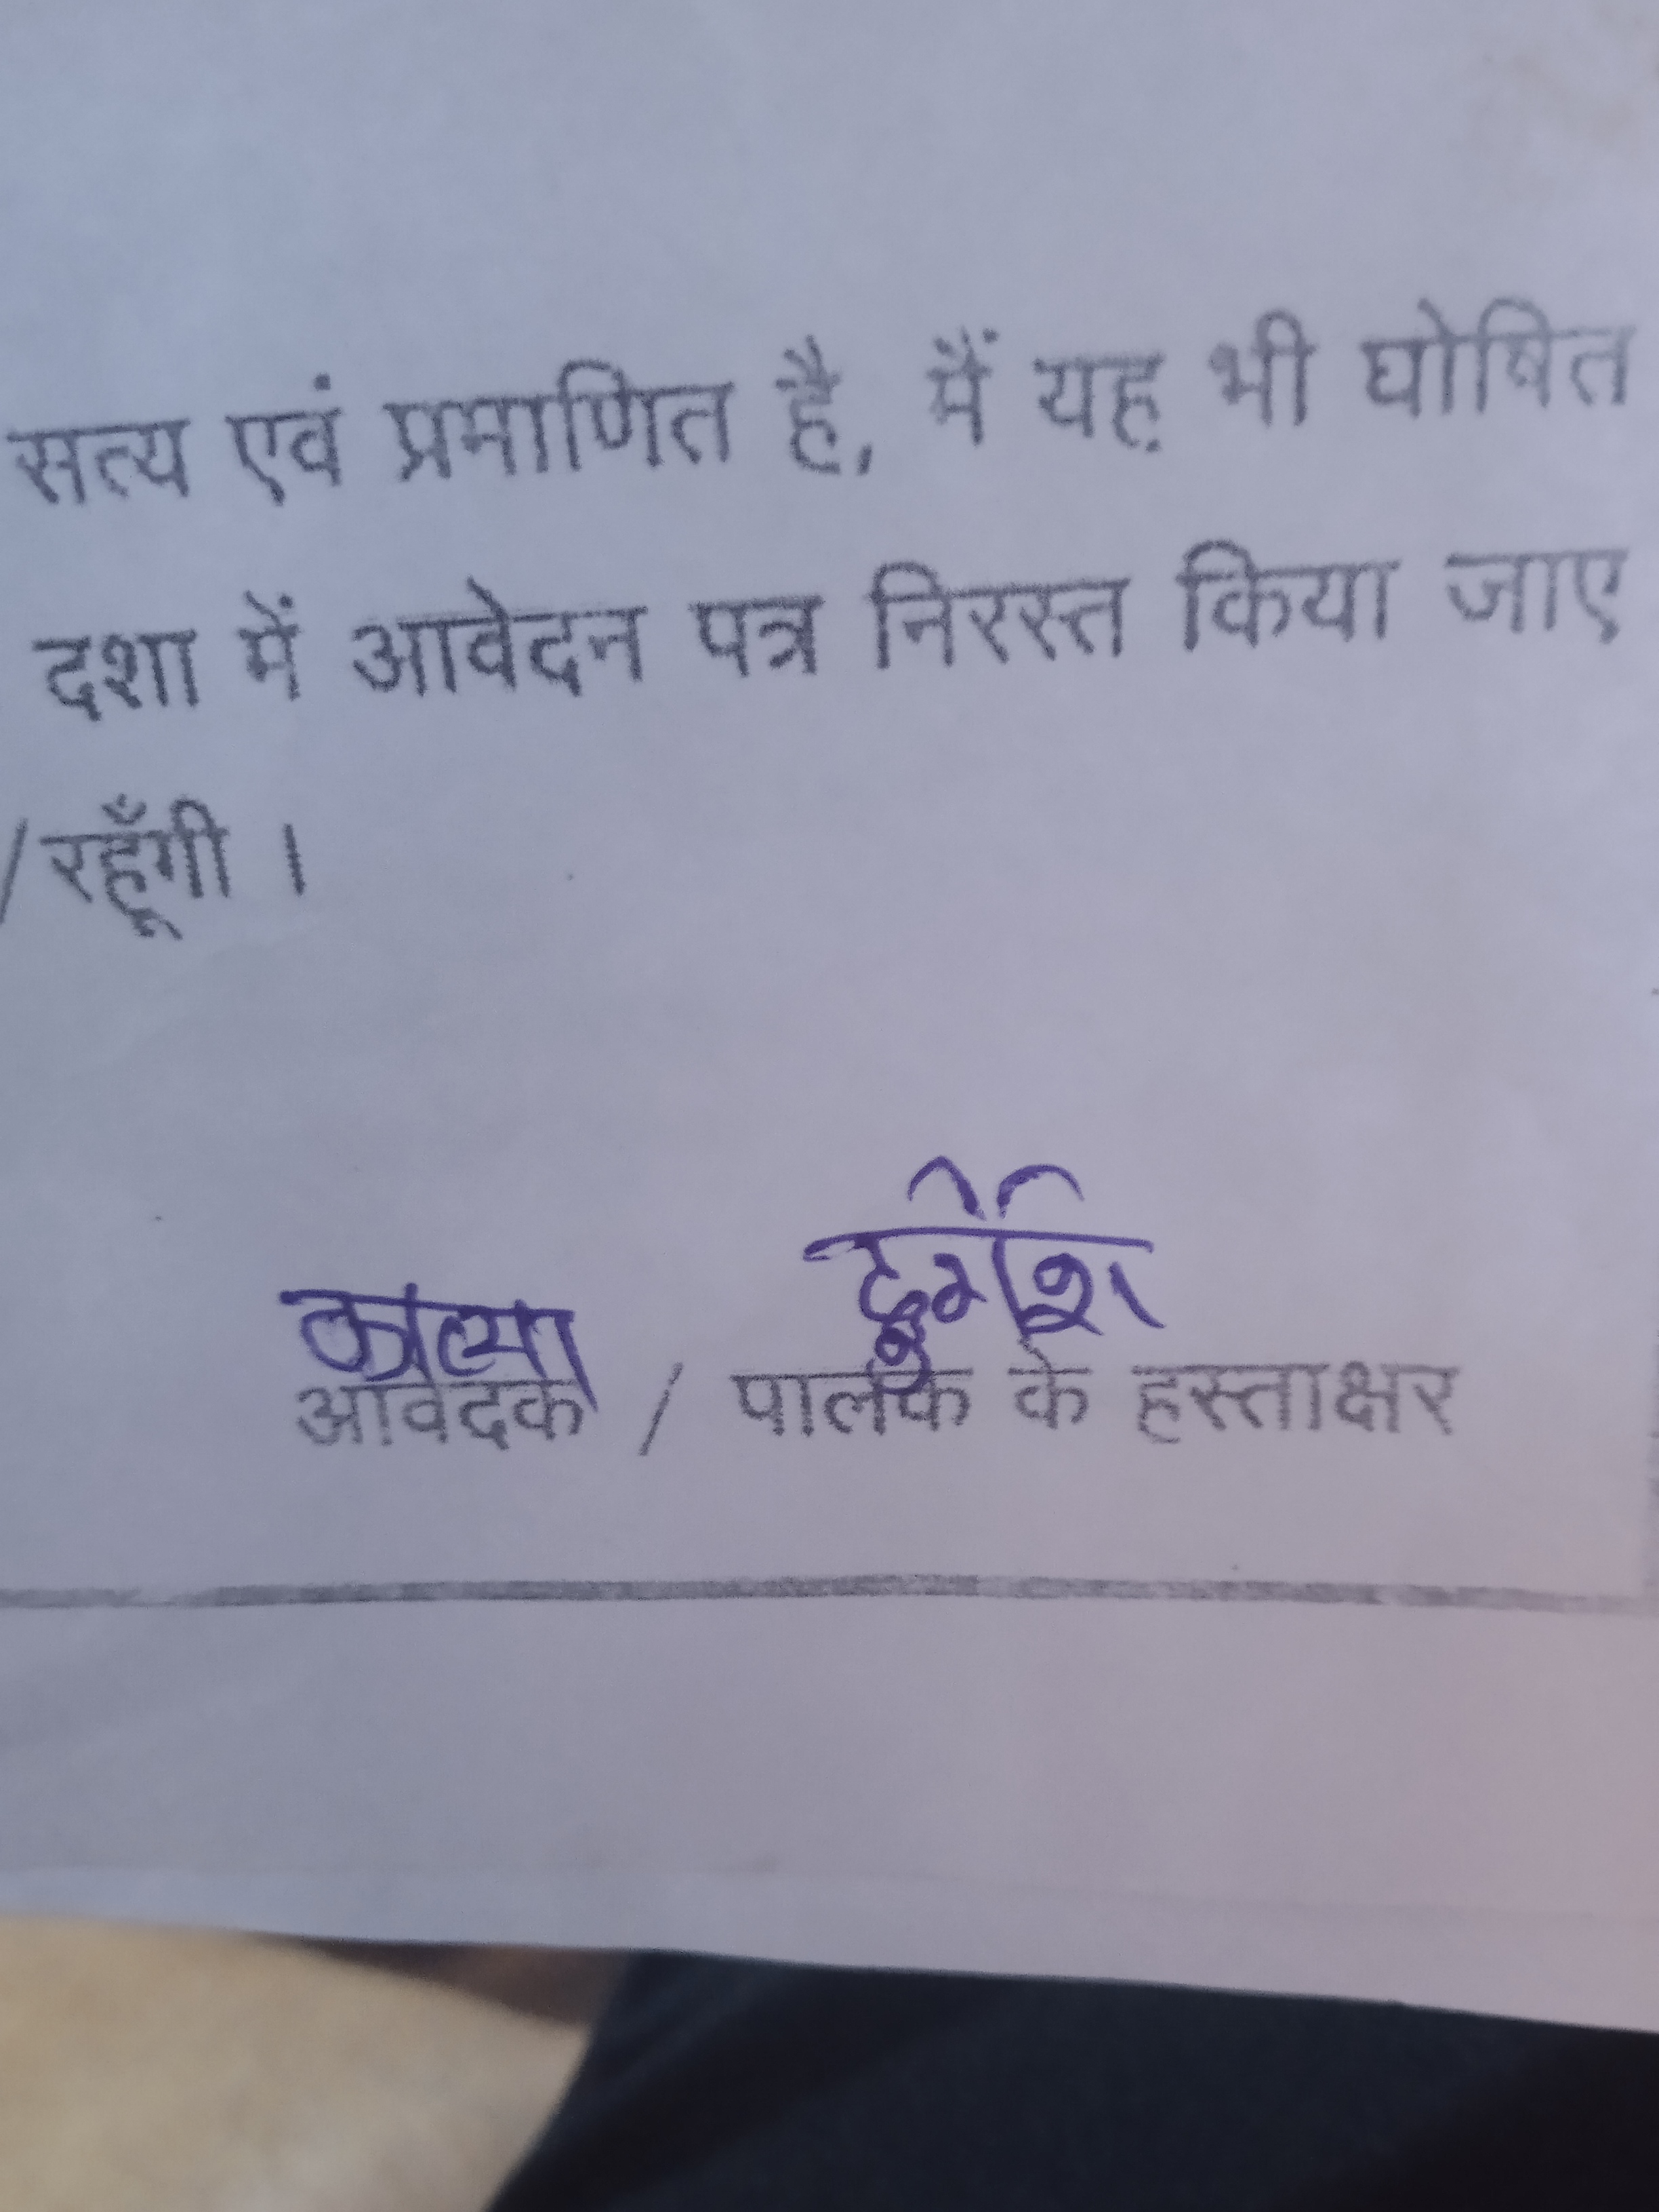 सत्य एवं प्रमाणित है, मैं यह भी घोषित
दशा में आवेदन पत्र निरस्त किया जाए
/रहूँगी ।
काव्या दुर्गेश
आवेदक / पालक के हस्ताक्षर